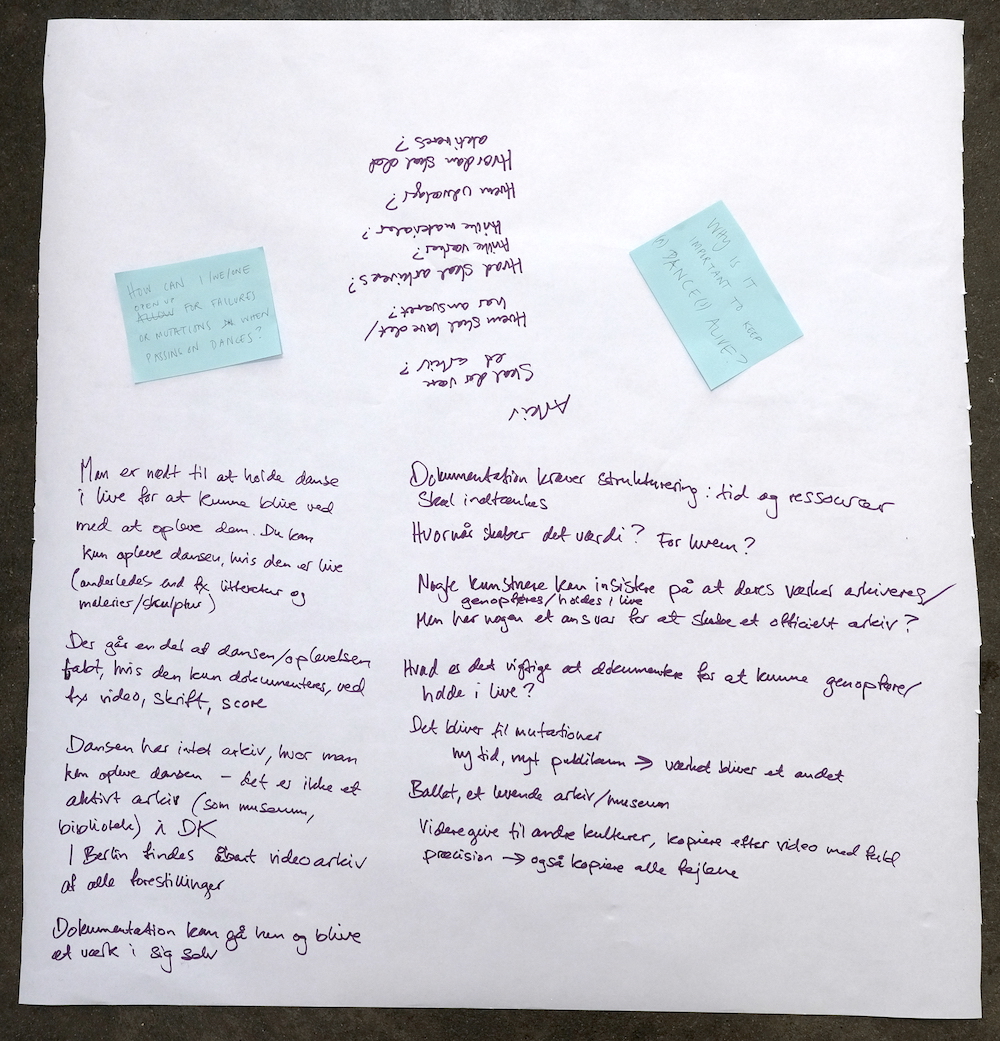 Arkiv
Skal der være
et arkiv?
Hvem skal lave det/
har ansvaret?
Hvad skal arkiveres?
Hvilke værker?
Hvilke materialer?
Hvem udvælger?
Hvordan skal det
aktiveres?
HOW CAN I/WE/ONE
OPEN UP
ALLOW FOR FAILURES
OR MUTATIONS WHEN
PASSING ON DANCES?
WHY IS IT
IMPORTANT TO KEEP
(A) DANCE(S) ALIVE?
Man er nødt til at holde danse
i live for at kunne blive ved
med at opleve dem. Du kan
kun opleve dansen, hvis den er live
(anderledes end fx litteratur og
malerier/skulptur)
Der går en del af dansen/oplevelsen
tabt, hvis den kun dokumenteres, ved
fx video, skrift, score
Dansen har intet arkiv, hvor man
kan opleve dansen – det er ikke et
aktivt arkiv (som museum,
bibliotek) i DK
I Berlin findes åbent videoarkiv
af alle forestillinger
Dokumentation kan gå hen og blive
et værk i sig selv
Dokumentation kræver strukturering: tid og ressourcer
skal indtænkes
Hvornår skaber det værdi? For hvem?
Nogle kunstnere kan insistere på at deres værker arkiveres/
genopføres/holdes i live
Men har nogen et ansvar for at skabe et officielt arkiv?
Hvad er det vigtige at dokumentere for at kunne genopføre/
holde i live?
Det bliver til mutationer
ny tid, nyt publikum → værket bliver et andet
Ballet, et levende arkiv/museum
Videregive til andre kulturer, kopiere efter video med fuld
præcision → også kopiere alle fejlene